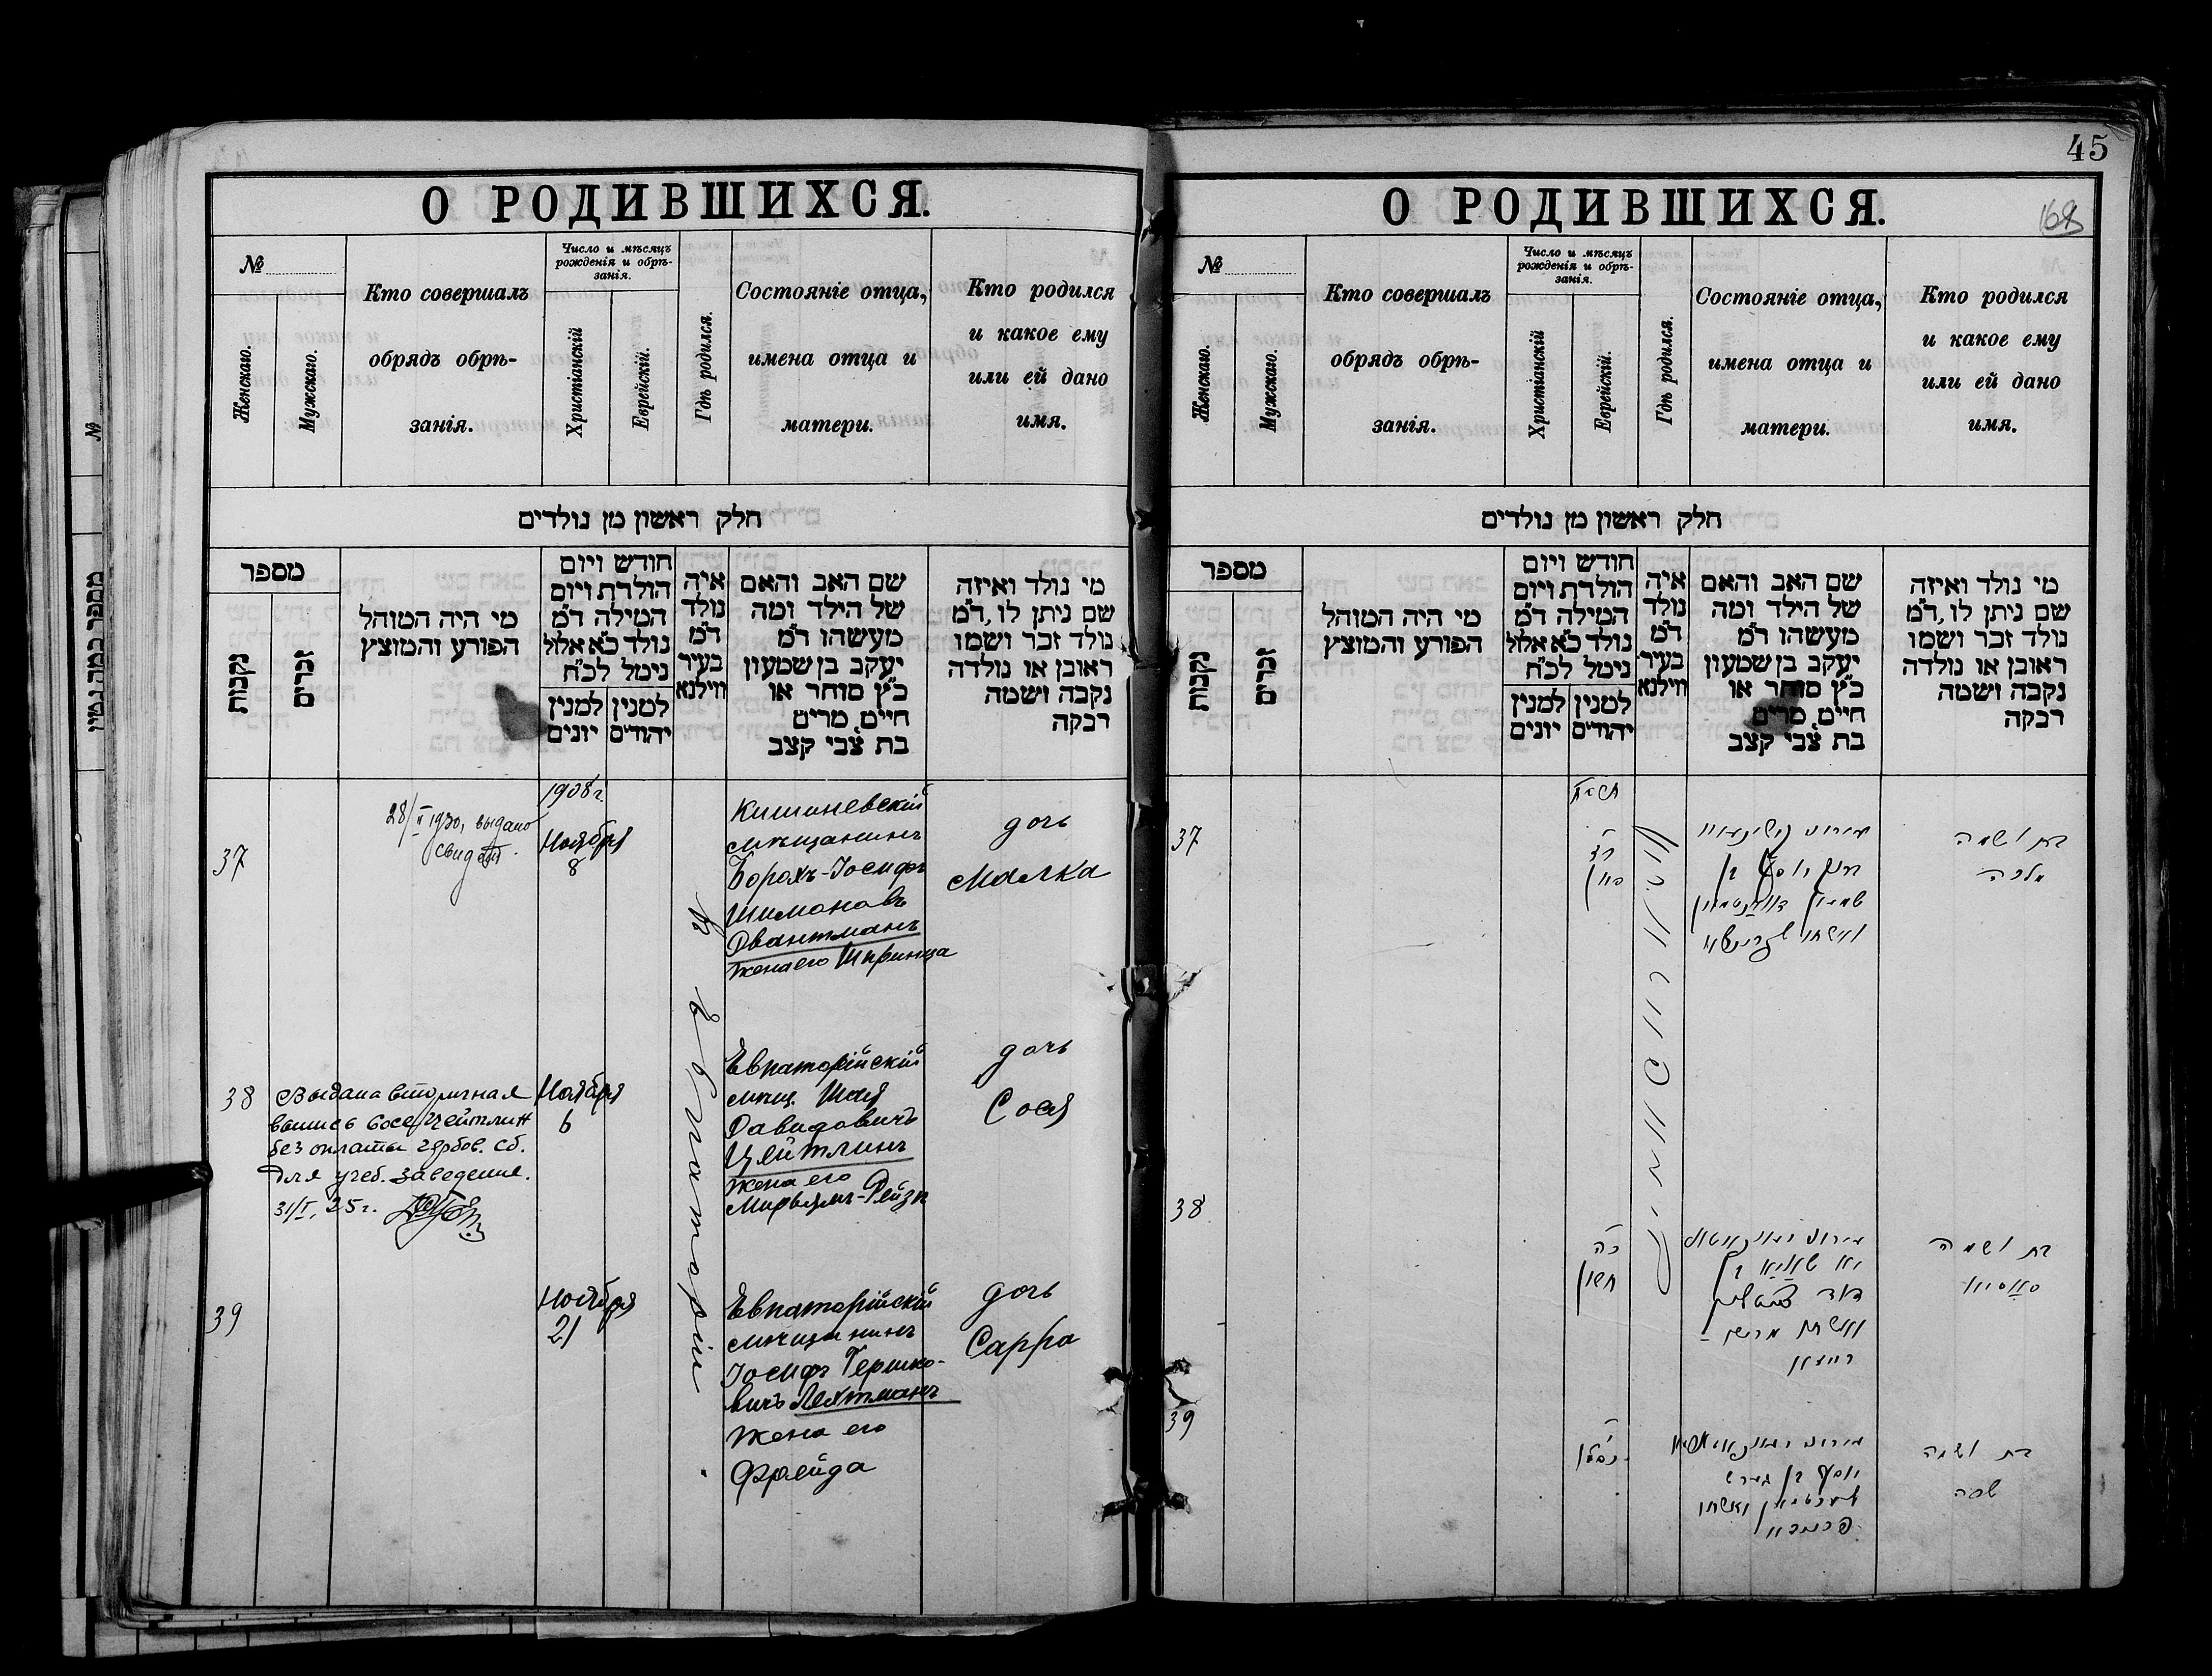 О РОДИВШИХСЯ.
№
Женскаго.
Мужскаго.
Кто совершалъ
обрядъ обрѣ-
занія.
Число и мѣсяцъ
рожденія и обрѣ-
занія.
Христіанскій
Еврейскій.
Гдѣ родился.
Состояніе отца,
имена отца и
матери.
Кто родился
и какое ему
или ей дано
имя.
חלק ראשון מן נולדים
מספר
נקבות
זכרים
מי היה המוהל
הפורע והמוצץ
חודש ויום
הולדת ויום
המילה ד״מ
נולד כ״א אלול
נימל לכ״ח
למנין
יונים
למנין
יהודים
איה
נולד
ד״מ
בעיר
ווילנא
שם האב והאם
של הילד ומה
מעשהו ד״מ
יעקב בן שמעון
כ״ץ סוחר או
חיים, מרים
בת צבי קצב
מי נולד ואיזה
שם ניתן לו, ד״מ
נולד זכר ושמו
ראובן או נולדה
נקבה ושמה
רבקה
37
28/II 1930, выдано
свидет.
1908 г.
Ноября
8
въ Евпаторіи
Кишиневскій
мѣщанинъ
Борохъ-Іосифъ
Шимоновъ
Двантманъ
жена его Шпринца
дочь
Малка
38
Выдана вторичная
выпись Сосе Цейтлин
без оплаты гербов. сб.
для учеб. заведения.
31/I, 25 г.
Ноября
6
Евпаторійскій
мѣщ. Шая
Давидовичъ
Цейтлинъ
жена его
Мирьямъ-Рейзя
дочь
Сося
39
Ноября
21
Евпаторійскій
мѣщанинъ
Іосифъ Гершко-
вичъ Лехтманъ
жена его
Фрейда
дочь
Сарра
45
О РОДИВШИХСЯ.
№
Женскаго.
Мужскаго.
Кто совершалъ
обрядъ обрѣ-
занія.
Число и мѣсяцъ
рожденія и обрѣ-
занія.
Христіанскій
Еврейскій.
Гдѣ родился.
Состояніе отца,
имена отца и
матери.
Кто родился
и какое ему
или ей дано
имя.
חלק ראשון מן נולדים
מספר
נקבות
זכרים
מי היה המוהל
הפורע והמוצץ
חודש ויום
הולדת ויום
המילה ד״מ
נולד כ״א אלול
נימל לכ״ח
למנין
יונים
למנין
יהודים
איה
נולד
ד״מ
בעיר
ווילנא
שם האב והאם
של הילד ומה
מעשהו ד״מ
יעקב בן שמעון
כ״ץ סוחר או
חיים, מרים
בת צבי קצב
מי נולד ואיזה
שם ניתן לו, ד״מ
נולד זכר ושמו
ראובן או נולדה
נקבה ושמה
רבקה
37
יוסף בן
שמעון
בת ושמה
מלכה
38
כה
חשון
דוד
ואשתו מרים-
רייזא
בת ושמה
סאסיא
39
כסלו
יוסף בן
ואשתו
פריידא
בת ושמה
שרה